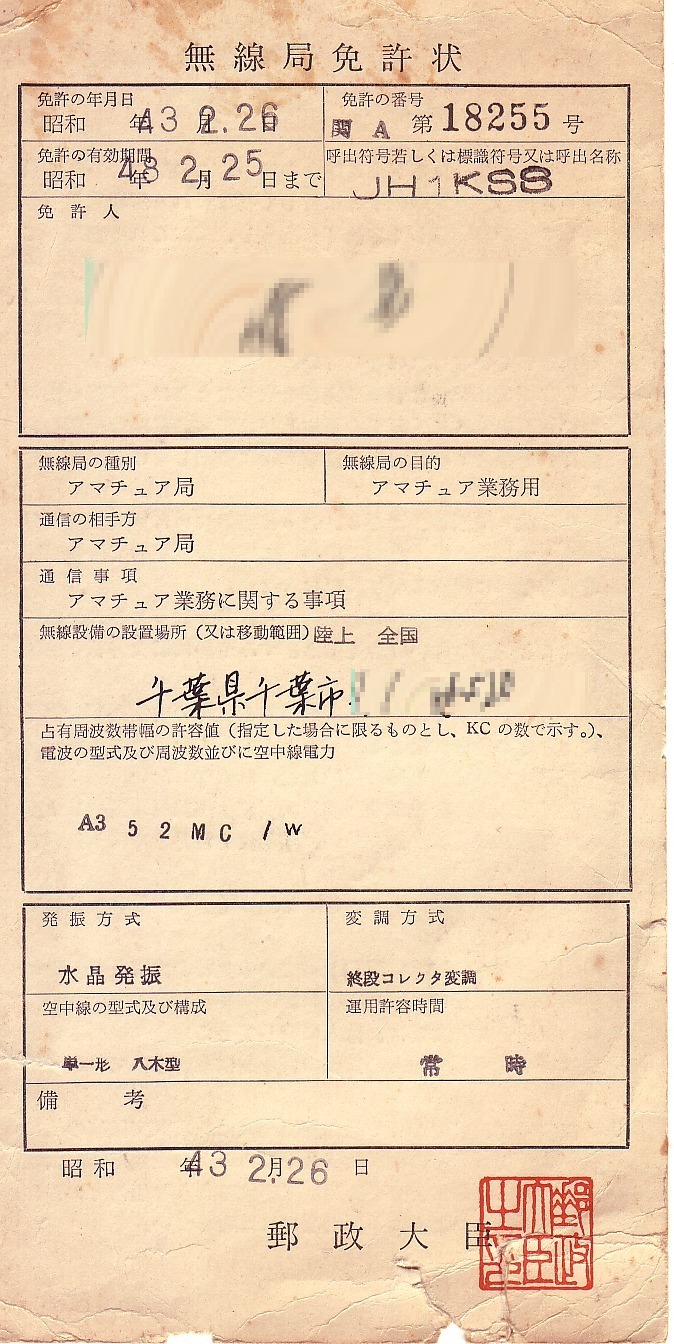 無線局免許状
免許の年月日
昭和 年43 2月.26日
免許の番号
関A 第18255号
免許の有効期間
昭和 48年 2月 25日まで
呼出符号若しくは標識符号又は呼出名称
JH1KSS
免許人
無線局の種別
アマチュア局
無線局の目的
アマチュア業務用
通信の相手方
アマチュア局
通信事項
アマチュア業務に関する事項
無線設備の設置場所(又は移動範囲)陸上 全国
千葉県千葉市
占有周波数帯幅の許容値(指定した場合に限るものとし、KCの数で示す。)、
電波の型式及び周波数並びに空中線電力
A3 52MC 1W
発振方式
水晶発振
変調方式
終段コレクタ変調
空中線の型式及び構成
単一形 八木型
運用許容時間
常時
備考
昭和 年43 2月.26日
郵政大臣
郵政大臣之印